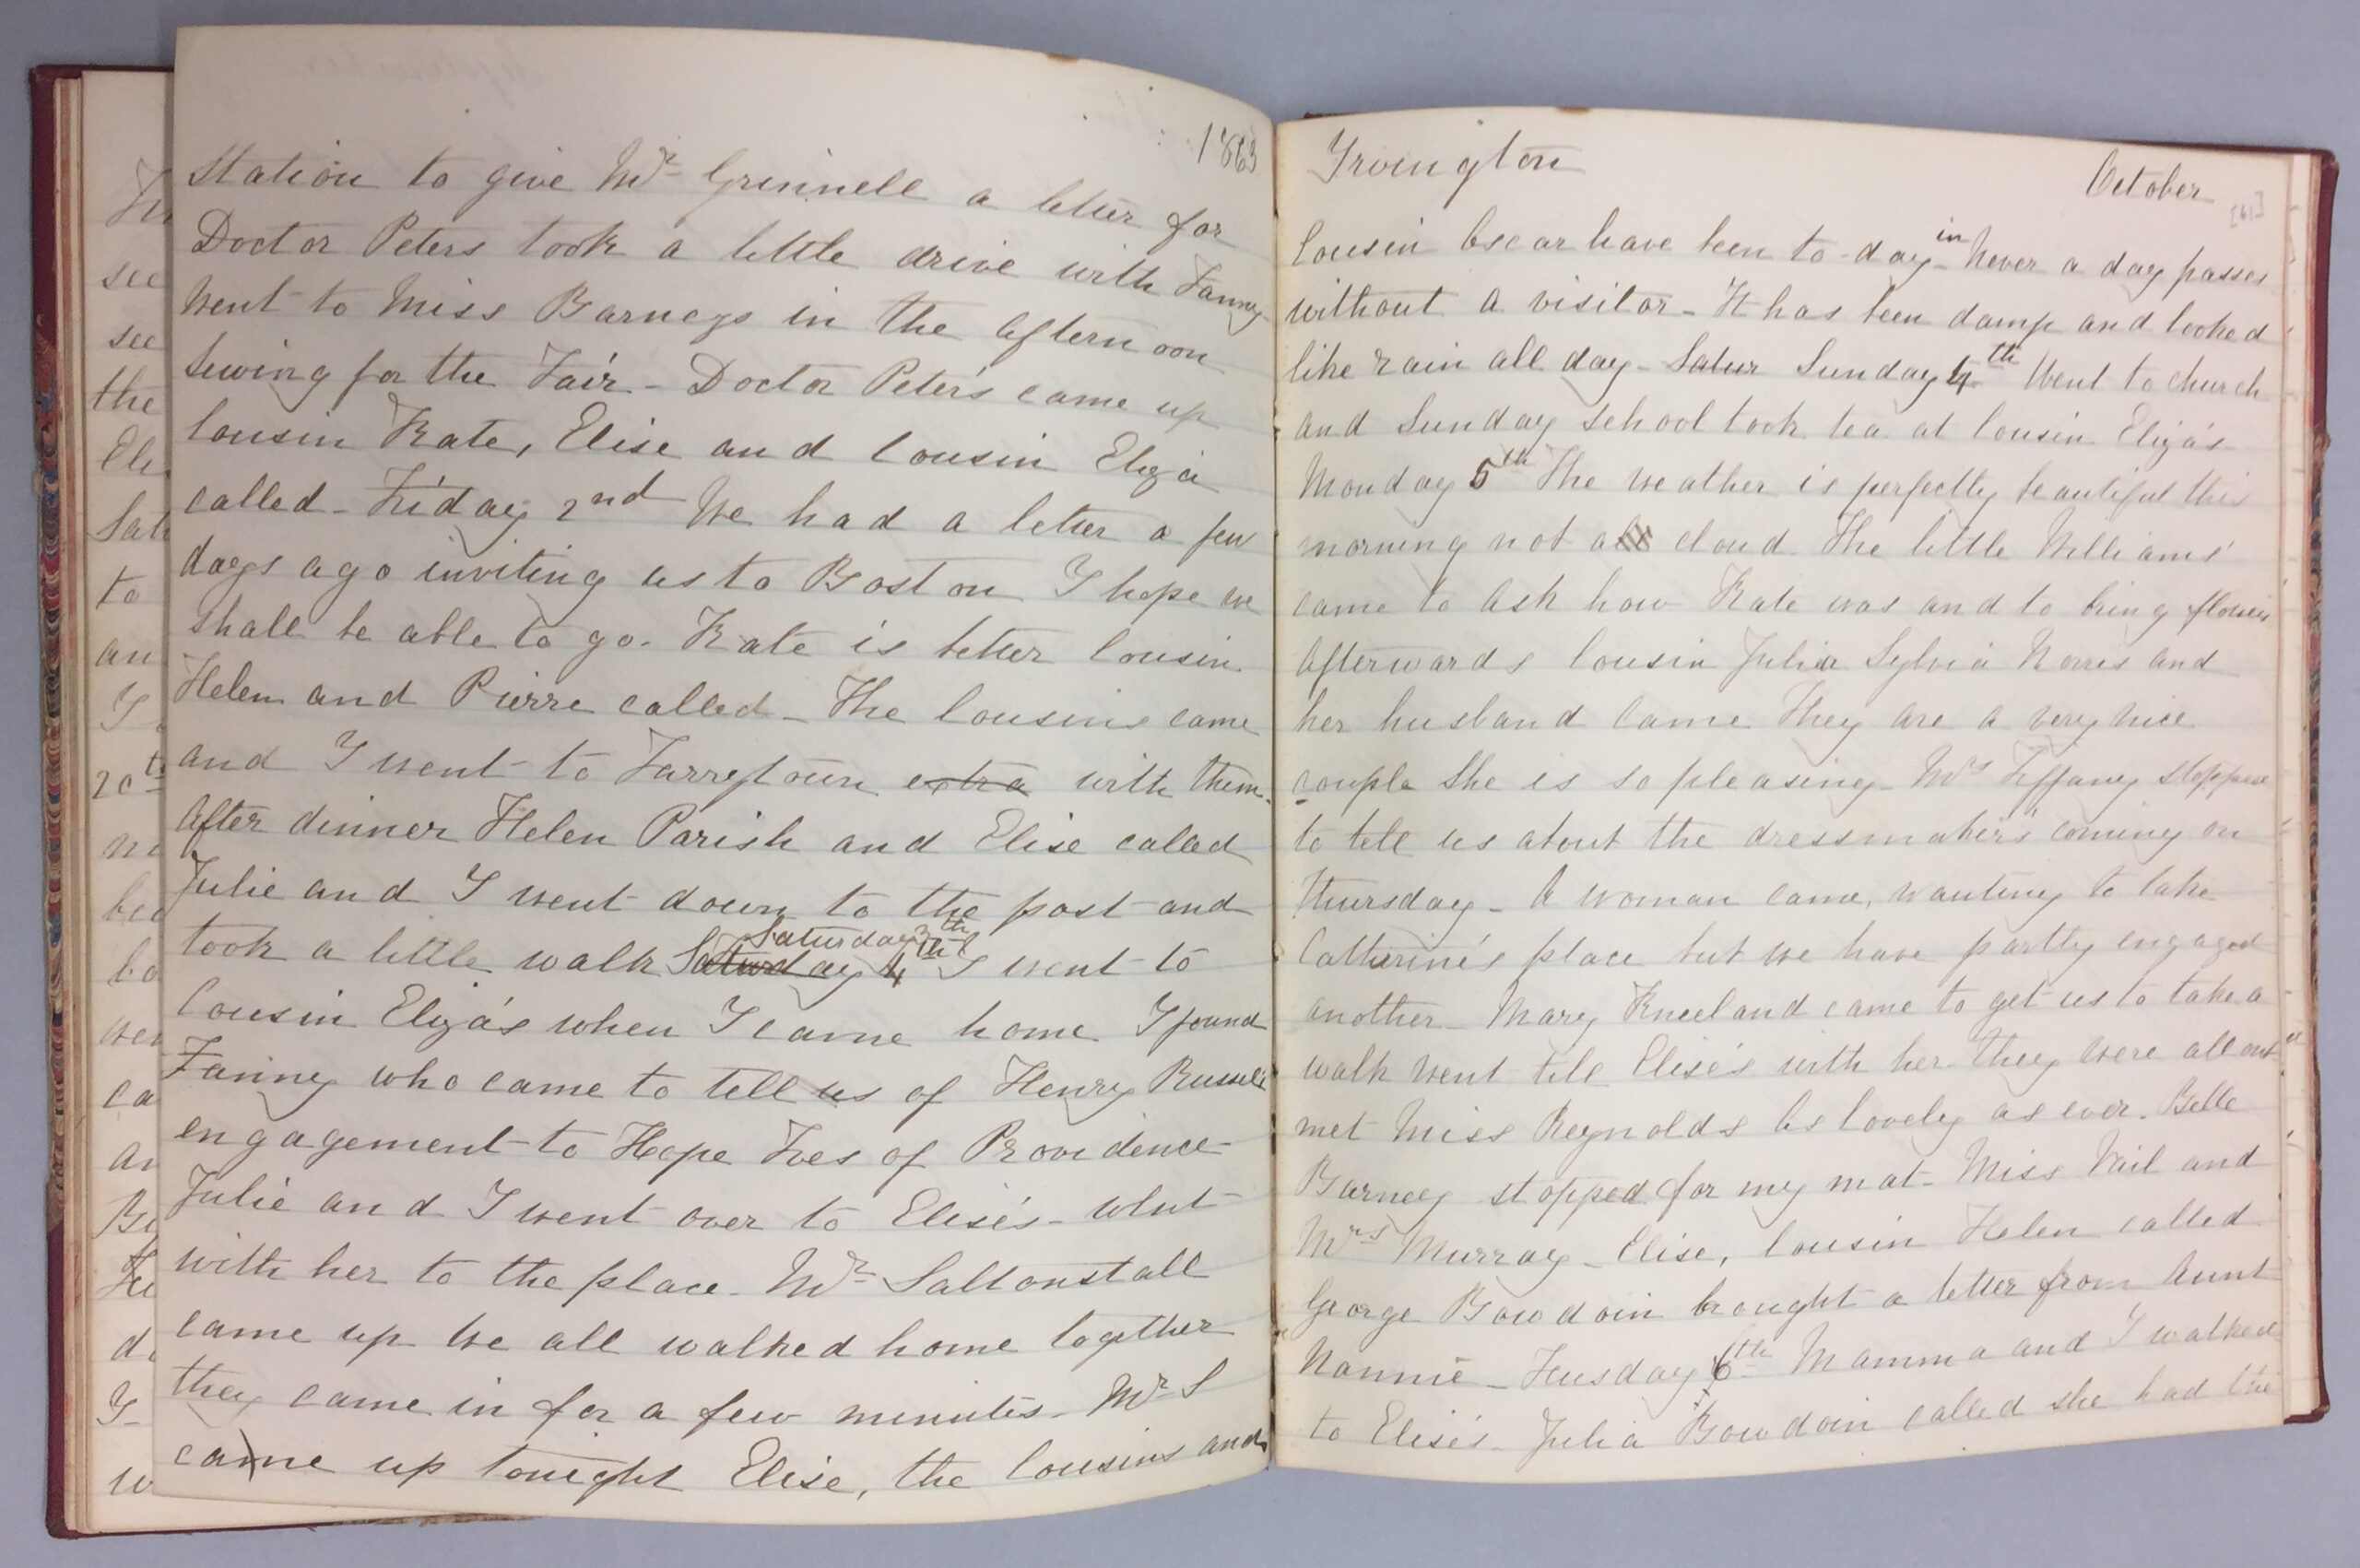 1863
Station to give Mr Grinnell a letter for
Doctor Peters took a little drive with Fanny
Went to Miss Barneys in the afternoon
Sewing for the Fair - Doctor Peters came up
Cousin Kate, Elise and Cousin Eliza
called - Friday 2nd We had a letter a few
days ago inviting us to Boston I hope we
shall be able to go. Kate is better Cousin
Helen and Pierre called - The Cousins came
and I went to Tarrytown extra with them.
After dinner Helen Parish and Elise called
Julie and I went down to the post and
Saturday 3th
took a little walk Saturday 4th I went to
Cousin Eliza's when I came home I found
Fanny who came to tell us of Henry Russell's
engagement to Hope Ives of Providence
Julie and I went over to Elise's - Went
with her to the place. Mr Saltonstall
came up we all walked home together
they came in for a few minutes - Mr S
came up tonight Elise, the Cousins and
Irvington
October
[61]
Cousin Oscar have been to-day in Never a day passes
without a visitor - It has been damp and looked
like rain all day - Satur Sunday 4th Went to church
and Sunday School took tea at Cousin Eliza's
Monday 5th The weather is perfectly beautiful this
morning not a cloud. The little Williams'
came to ask how Kate was and to bring flowers
Afterwards Cousin Julia Sylvia Norris and
her husband came They are a very nice
couple She is so pleasing - Mrs Tiffany stopped
to tell us about the dressmaker's coming on
Thursday - A woman came, wanting to take
Catherine's place but we have partly engaged
another - Mary Kneeland came to get us to take a
walk went till Elise's with her they were all out
met Miss Reynolds as lovely as ever. Belle
Barney stopped for my mat - Miss Vail and
Mrs Murray - Elise, Cousin Helen called
George Bowdoin brought a letter from Aunt
Nannie - Tuesday 6th Mamma and I walked
to Elise's - Julia Bowdoin called she had the